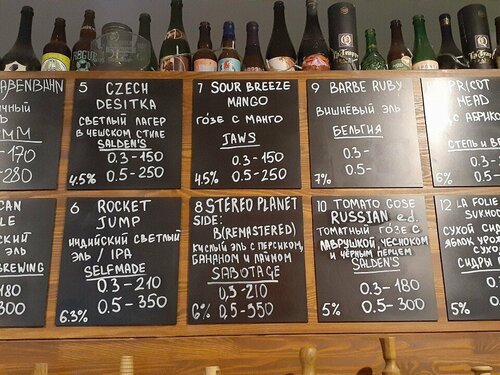 ABENBAHN
170
280
5 CZECH
DESITKA
СВЕТЛЫЙ ЛАГЕР
В ЧЕШСКОМ СТИЛЕ
SALDEN'S
0.3-150
4.5% 0.5-250
7 SOUR BREEZE
MANGO
ГОЗЕ С МАНГО
JAWS
0.3-150
4,5% 0.5-250
9 BARBE RUBY
ВИШНЁВЫЙ ЭЛЬ
БЕЛЬГИЯ
0.3-
7% 0.5-
MEAD
С АБРИКО
СТЕПЬ И ВЕ
5%
180
300
6 ROCKET
JUMP
ИНДИЙСКИЙ СВЕТЛЫЙ
ЭЛЬ / IPA
SELFMADE
0.3-210
6.3% 0.5-350
8 STEREO PLANET
SIDE:
B(REMASTERED)
КИСЛЫЙ ЭЛЬ С ПЕРСИКОМ,
БАНАНОМ И ЛАЙМОМ
SABOTAGE
0,3-210
6% 0,5-350
10 TOMATO GOSE
RUSSIAN ed.
ТОМАТНЫЙ ГОЗЕ С
ХАВРУШКОЙ, ЧЕСНОКОМ
И ЧЁРНЫМ ПЕРЦЕМ
SALDEN'S
0.3-180
5% 0.5-300
12 LA FOLIE
SUKHO
СУХОЙ СИД
ЯБЛОК УРО
СУХО
СИДРЫ
5%